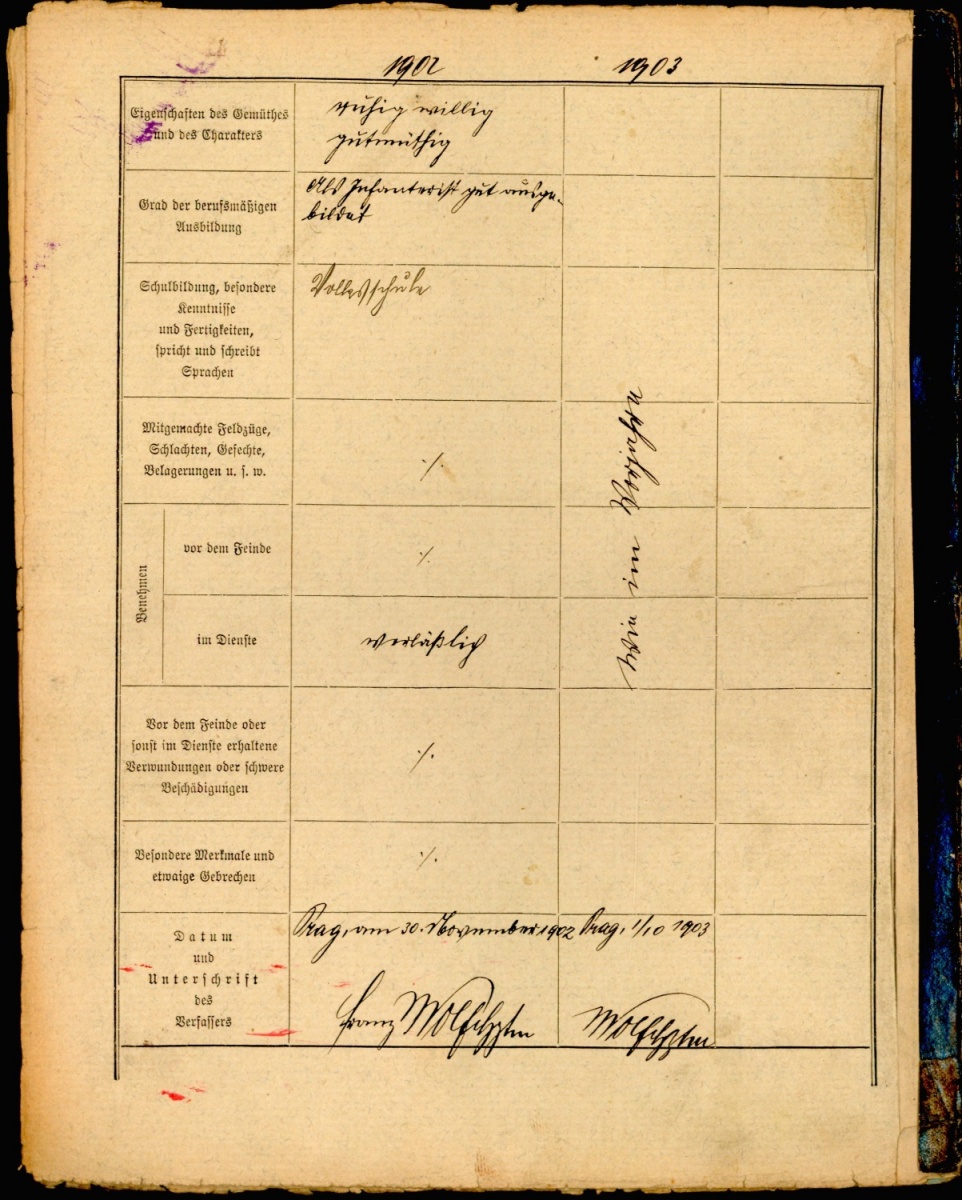 1902 1903
Eigenschaften des Gemüthes
und des Charakters
ruhig willig
gutmüthig
Grad der berufsmäßigen
Ausbildung
Als Infanterist gut ausge-
bildet
Schulbildung, besondere
Kenntnisse
und Fertigkeiten,
spricht und schreibt
Sprachen
Volksschule
Mitgemachte Feldzüge,
Schlachten, Gefechte,
Belagerungen u. s. w.
./.
Benehmen
vor dem Feinde
./.
im Dienste
verläßlich
Vor dem Feinde oder
sonst im Dienste erhaltene
Verwundungen oder schwere
Beschädigungen
./.
Besondere Merkmale und
etwaige Gebrechen
./.
Wie im Vorjahre
Datum
und
Unterschrift
des
Verfassers
Prag, am 30. November 1902
Franz
Prag, 1/10 1903